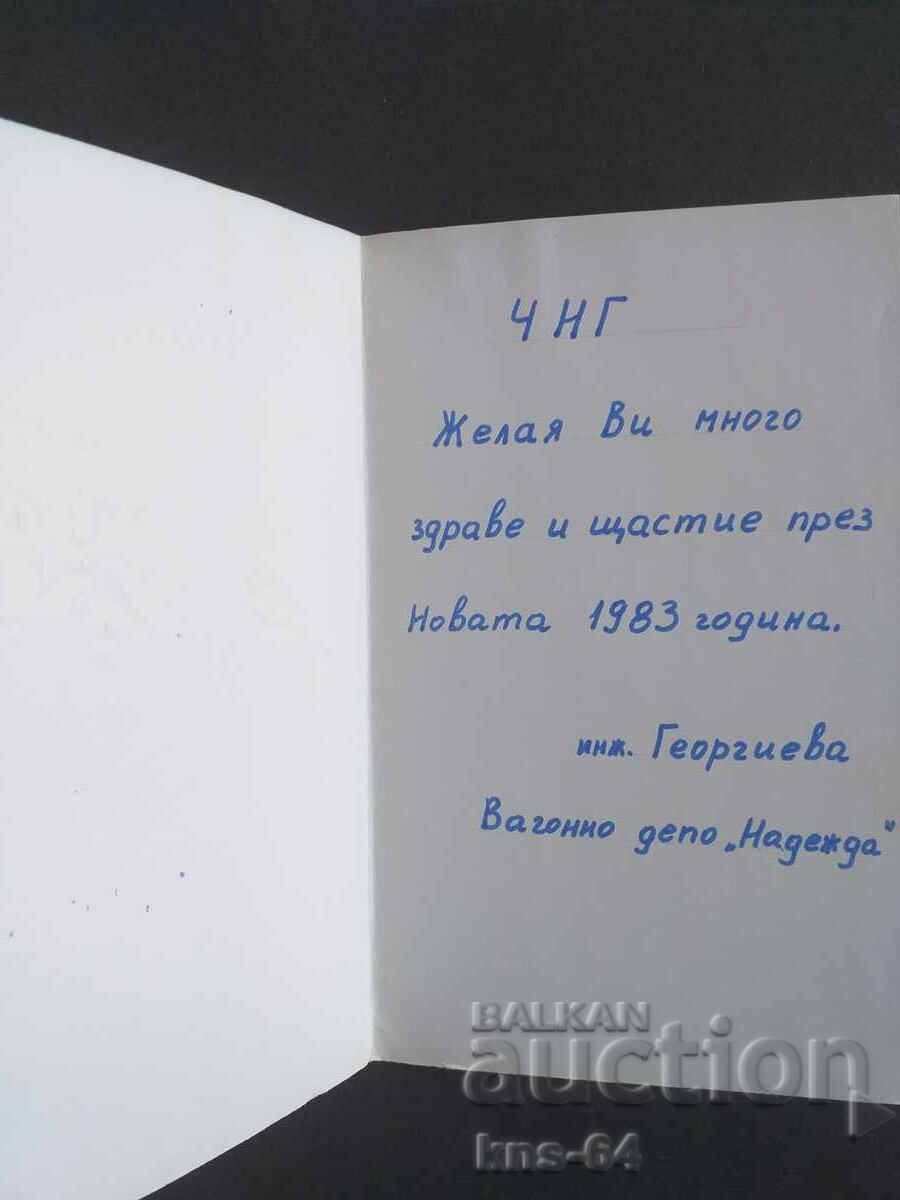 ЧНГ
Желая Ви много
здраве и щастие през
Новата 1983 година.
инж. Георгиева
Вагонно депо „Надежда"
BALKAN
auction
kns-64